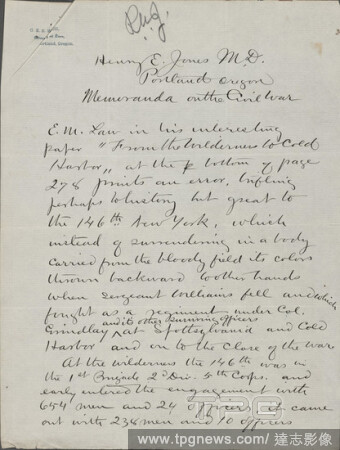 Henry E. Jones M.D.
Portland Oregon
Memoranda on the Civil War
E. M. Law in his interesting
paper "From the Wilderness to Cold
Harbor" at the bottom of page
278 prints an error, trifling
perhaps to history but great to
the 146th New York, which
instead of surrendering in a body
carried from the bloody field its colors
thrown backward to other hands
when Sergeant Williams fell and which
fought as a regiment under Col.
Grindlay and its other surviving officers at Spottsylvania and Cold
Harbor and on to the close of the war
At the wilderness the 146th was in
the 1st Brigade 2d Div. 5th Corps. and
early entered the engagement with
654 men and 24 officers, it came
out with 234 men and 10 officers
TPG
www.tpgnews.com/達志影像